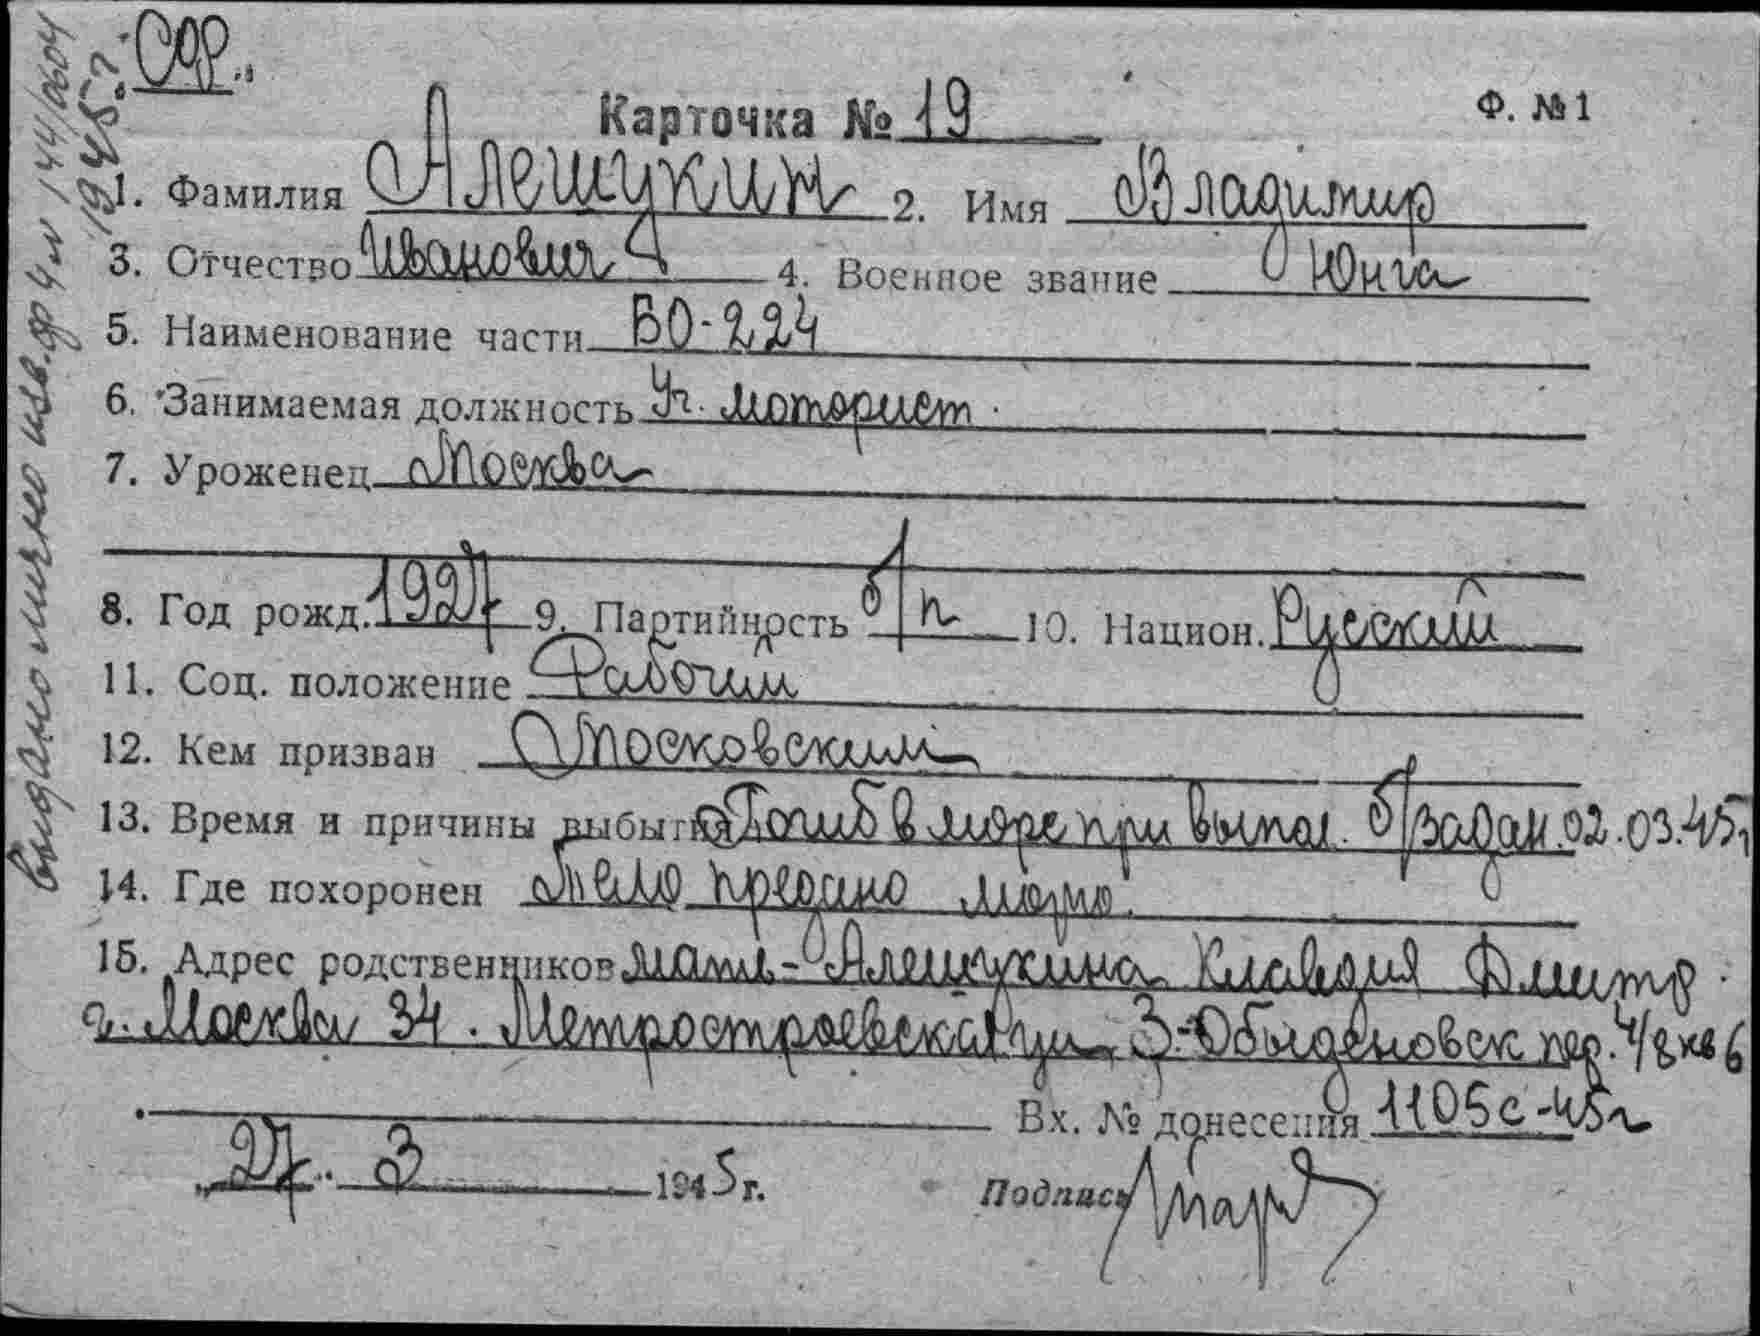 Карточка № 19
Ф. № 1
1. Фамилия Алешукин 2. Имя Владимир
3. Отчество Иванович 4. Военное звание Юнга
5. Наименование части БО-224
6. Занимаемая должность Уч. моторист.
7. Уроженец Москва
8. Год рожд. 1927 9. Партийность б/п 10. Национ. Русский
11. Соц. положение Рабочий
12. Кем призван Московским
13. Время и причины выбытия Погиб в море при выпол. б/задан. 02.03.45г
14. Где похоронен Тело предано морю.
15. Адрес родственников мать - Алешукина Клавдия Дмитр.
г. Москва 34. Метростроевская ул 3-Обыденовск пер. 4/8 кв 6
Вх. № донесения 1105с-45г
„27“ 3 1945 г. Подпись
выдано изв. 1945г.